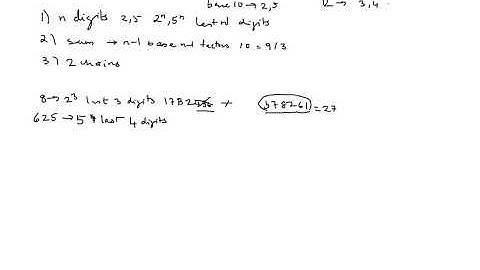 base 10 → 2,5 12 → 3,4
1) n digits 2,5 2ⁿ,5ⁿ last n digits
2) sum → n-1 base n-1 factors 10 = 9/3
3) 2 chains
8 → 2³ last 3 digits 1782 x 378261 = 27
625 → 5⁴ last 4 digits